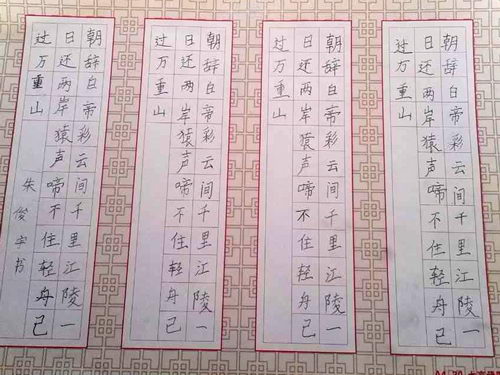 朝辞白帝彩云间千里江陵一
日还两岸猿声啼不住轻舟已
过万重山
朝辞白帝彩云间千里江陵一
日还两岸猿声啼不住轻舟已
过万重山
朝辞白帝彩云间千里江陵一
日还两岸猿声啼不住轻舟已
过万重山
朝辞白帝彩云间千里江陵一
日还两岸猿声啼不住轻舟已
过万重山
朱俊宇书